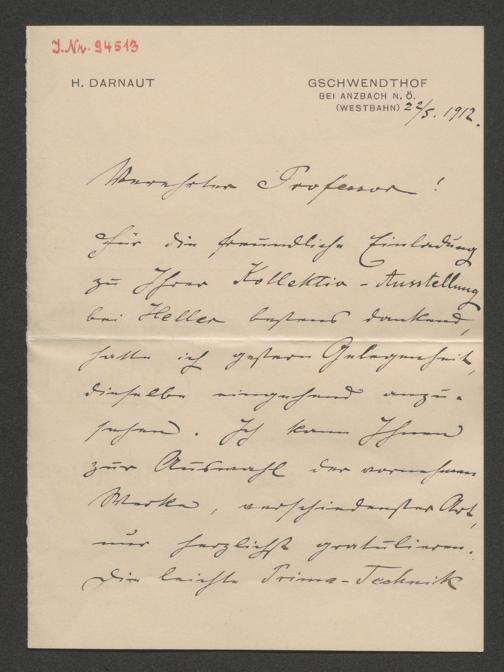 I.Nr. 94513
H. DARNAUT
GSCHWENDTHOF
BEI ANZBACH N. Ö.
(WESTBAHN) 22/5. 1912.
Verehrter Professor!
Für die freundliche Einladung
zu Ihrer Kollektiv-Ausstellung
bei Heller bestens dankend,
hatte ich gestern Gelegenheit,
dieselbe eingehend anzu-
sehen. Ich kann Ihnen
zur Auswahl der vornehmen
Werke, verschiedenster Art,
nur herzlichst gratulieren.
Die leichte Prima-Technik